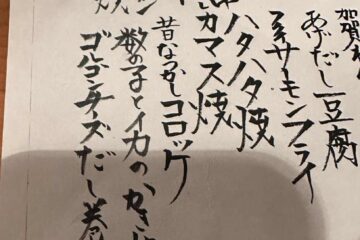 加賀
あげだし豆腐
サーモンフライ
ハタハタ焼
カマス焼
昔なつかしコロッケ
数の子とイカのかき
ゴルゴンチーズだし巻